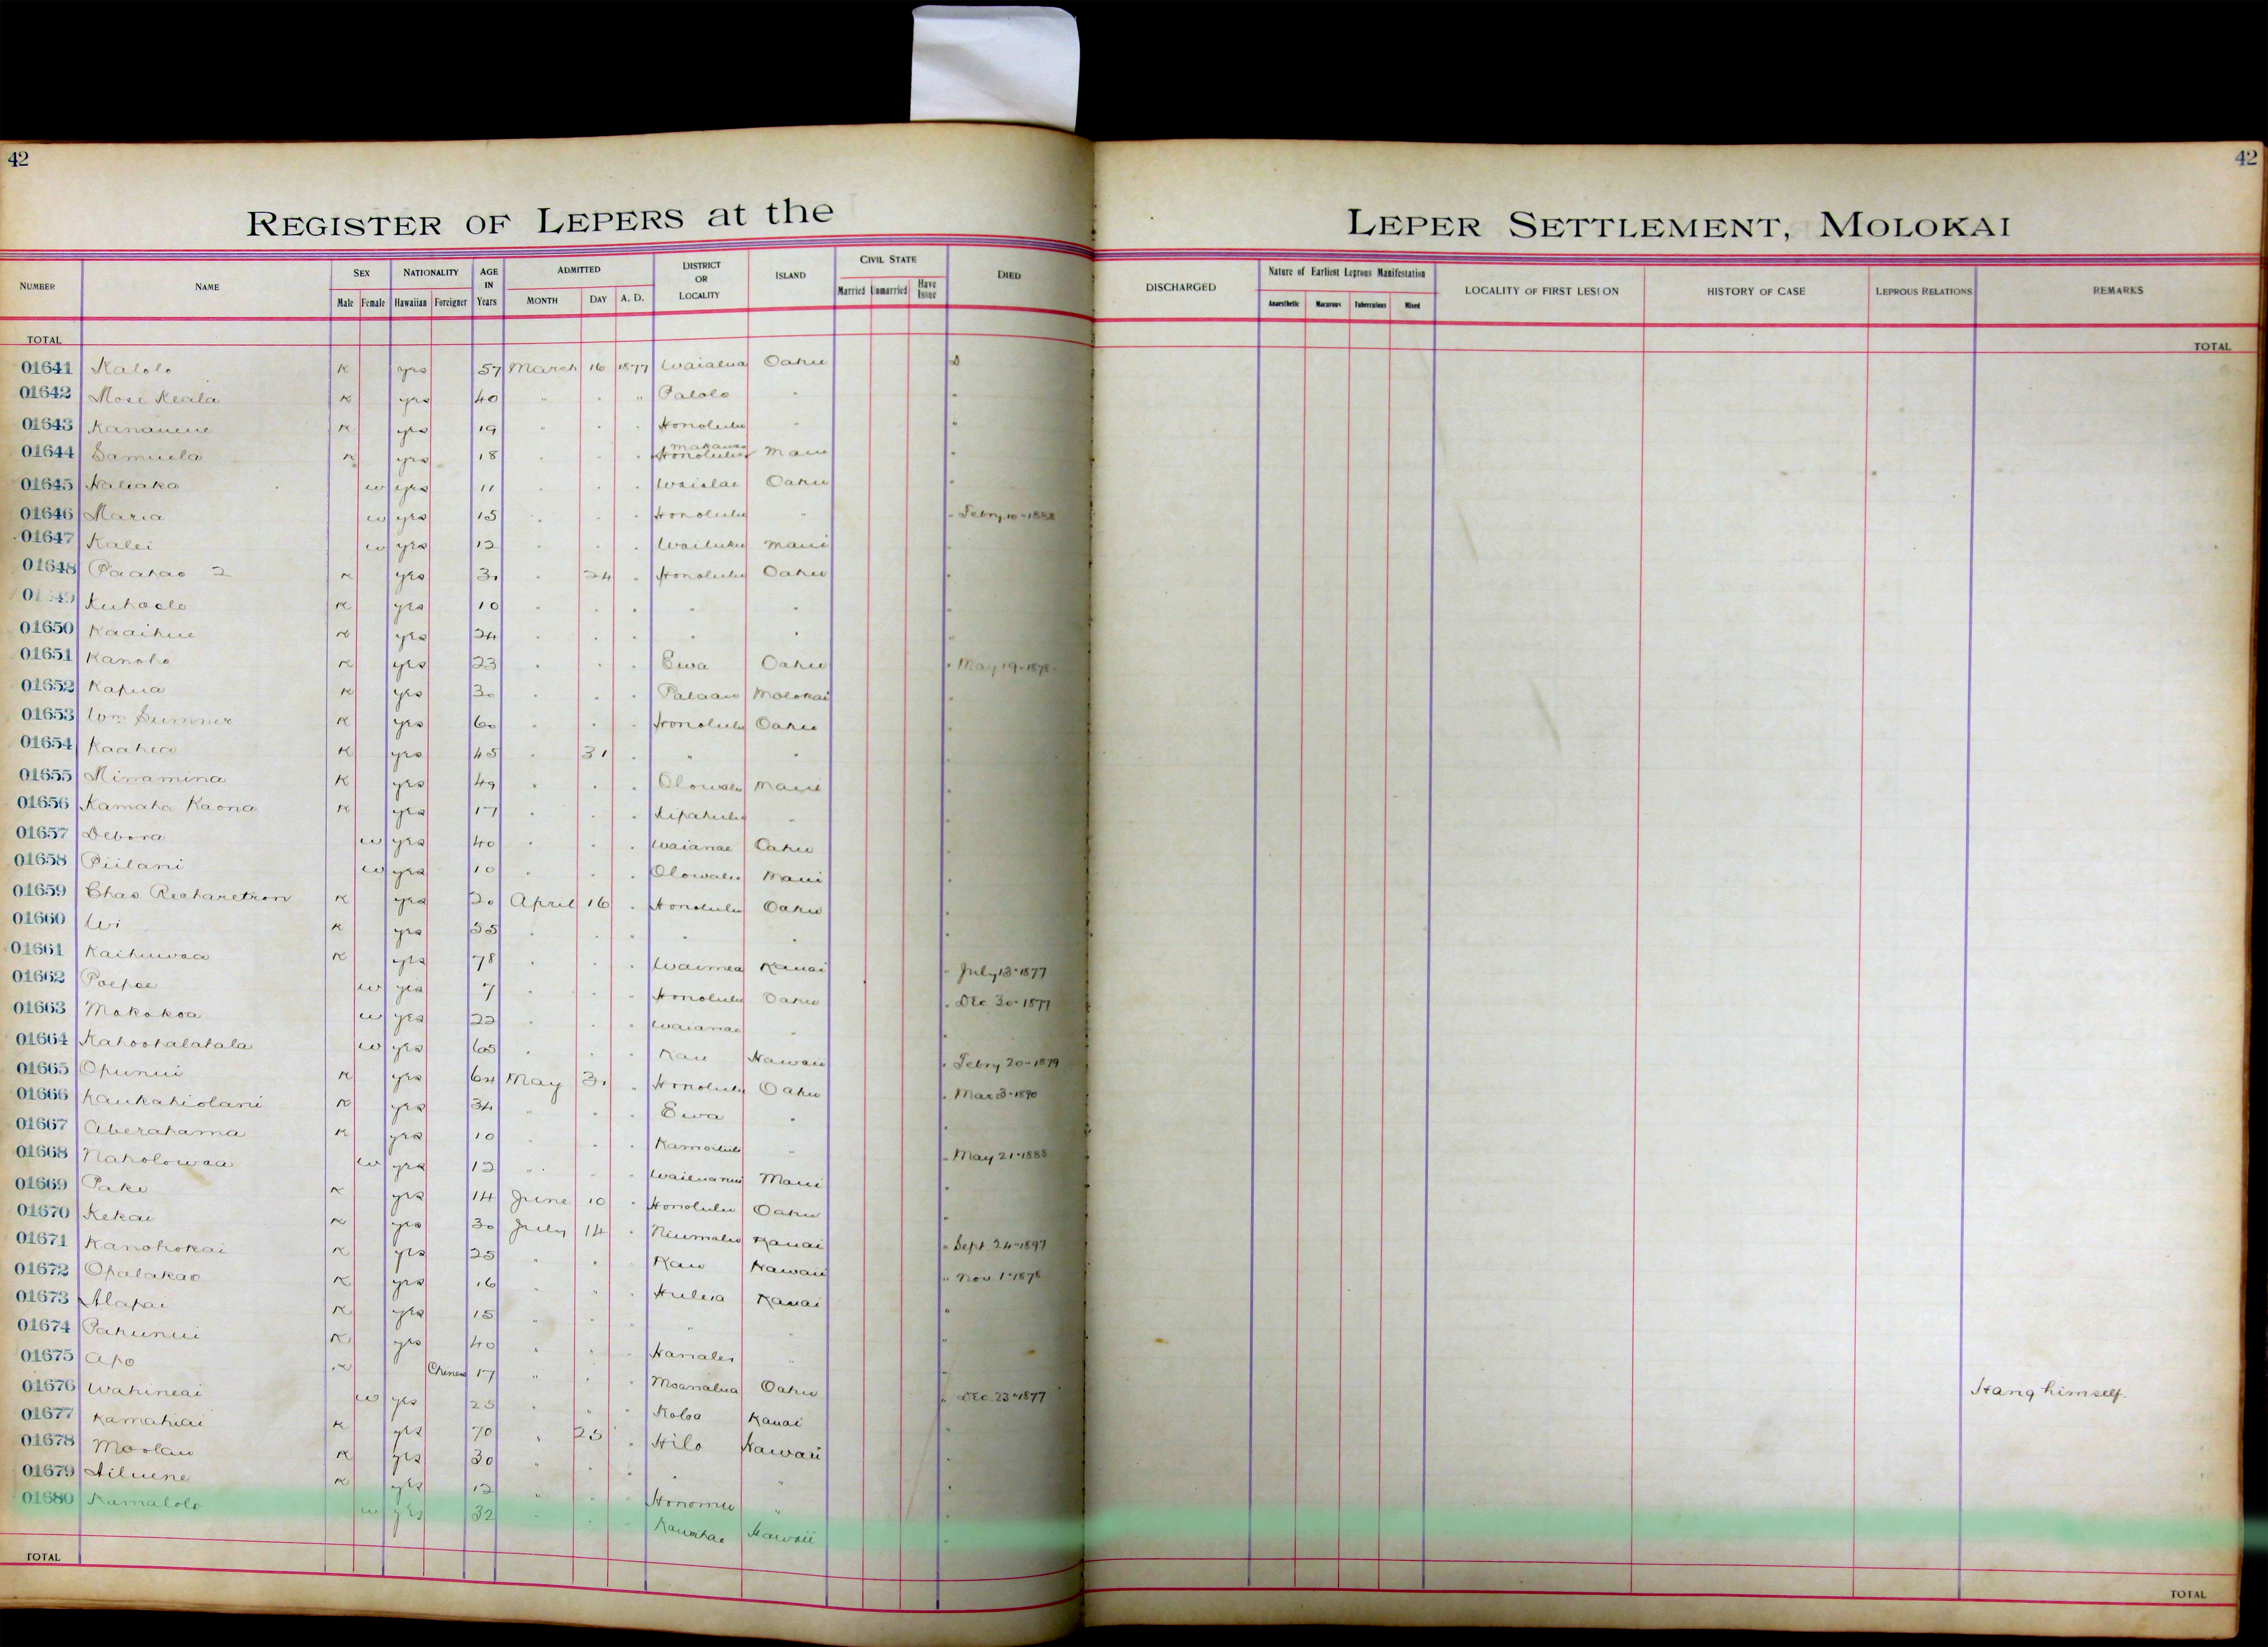 42
42
REGISTER OF LEPERS at the LEPER SETTLEMENT, MOLOKAI
NUMBER NAME SEX Male Female NATIONALITY Hawaiian Foreigner AGE IN Years ADMITTED MONTH DAY A. D. DISTRICT OR LOCALITY ISLAND CIVIL STATE Married Unmarried Have Issue DIED DISCHARGED Nature of Earliest Leprous Manifestation Anaesthetic Macurous Tuberculous Mixed LOCALITY OF FIRST LESION HISTORY OF CASE LEPROUS RELATIONS REMARKS
TOTAL TOTAL
01641 Kalolo K yes 57 March 16 1877 Waialua Oahu D
01642 Mose Keala K yes 40 " " " Palolo " "
01643 K yes 19 " " " Honolulu " "
01644 Samuela K yes 18 " " " Honolulu Makawao Maui "
01645 w yes 11 " " " Waialae Oahu "
01646 Maria w yes 15 " " " Honolulu " " Febry 10-1888
01647 Kalei w yes 12 " " " Wailuku Maui "
01648 Paahao 2 K yes 30 " 24 " Honolulu Oahu "
K yes 10 " " " " " "
01650 Kaaihue K yes 24 " " " " " "
01651 Kanoho K yes 23 " " " Ewa Oahu " May 19-1878
01652 Kapua K yes 30 " " " Palaau Molokai "
01653 Wm Sumner K yes 60 " " " Honolulu Oahu "
01654 Kaahea K yes 45 " 31 " " " "
01655 Minamina K yes 49 " " " Olowalu Maui "
01656 Kamaha Kaona K yes 17 " " " Kipahulu " "
01657 Debora w yes 40 " " " Waianae Oahu "
01658 Piilani w yes 10 " " " Olowalu Maui "
01659 Chas K yes 20 April 16 " Honolulu Oahu "
01660 Wi K yes 35 " " " " " "
01661 Kaihuwaa K yes 78 " " " Waimea Kauai " July 13-1877
01662 Poepoe w yes 7 " " " Honolulu Oahu " Dec 30-1877
01663 Mokokoa w yes 22 " " " Waianae " "
01664 Kahoohalahala w yes 65 " " " Kau Hawaii " Febry 20-1879
01665 Opunui K yes 64 May 31 " Honolulu Oahu " Mar 3-1890
01666 Kaukahiolani K yes 34 " " " Ewa " "
01667 Aberahama K yes 10 " " " Kamoiliili " " May 21-1888
01668 Naholowaa w yes 12 " " " Wailuanui Maui "
01669 Pake K yes 14 June 10 " Honolulu Oahu "
01670 Kekai K yes 30 July 14 " Niumalu Kauai " Sept 24-1897
01671 Kanohokai K yes 25 " " " Kau Hawaii " Nov 1-1878
01672 Opalakao K yes 16 " " " Huleia Kauai "
01673 Alapai K yes 15 " " " " " "
01674 Pahunui K yes 40 " " " Hanalei " "
01675 Apo K Chinese 17 " " " Moanalua Oahu " Dec 23-1877 Hang himself.
01676 Wahineai w yes 25 " " " Koloa Kauai "
01677 Kamahiai K yes 70 " 25 " Hilo Hawaii "
01678 Moolau K yes 30 " " " " " "
01679 K yes 12 " " " Honomu " "
01680 Kamalolo w yes 32 " " " Kawaihae Hawaii "
TOTAL TOTAL